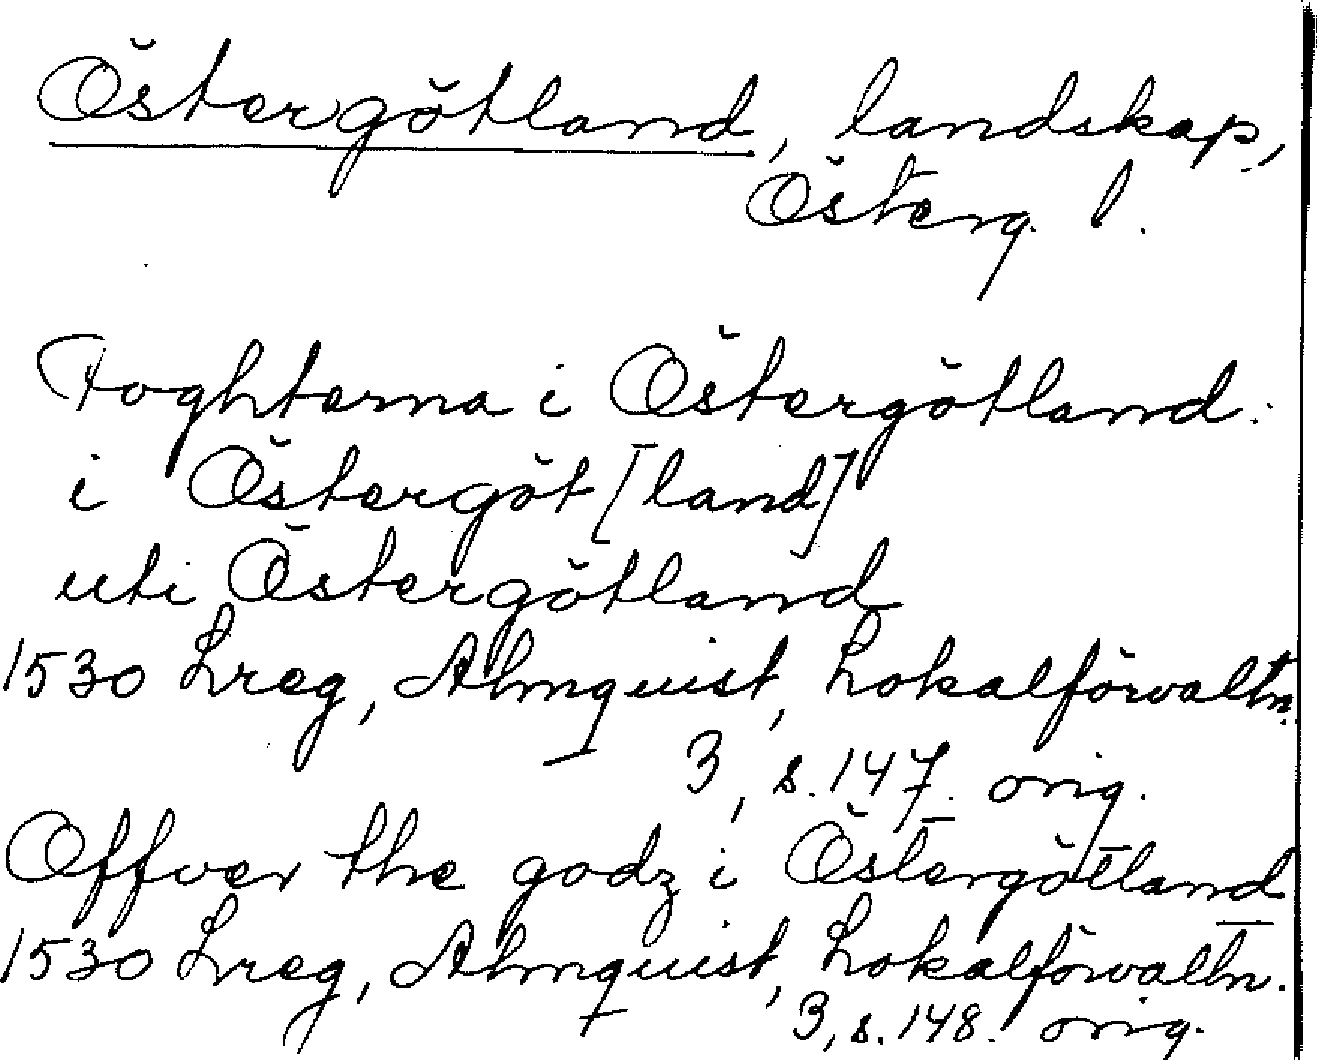 Östergötland, landskap,
Österg. l.
Foghterna i Östergötland.
i Östergöt[land]
uti Östergötland
1530 Lreg, Almquist, Lokalförvaltn.
3, s. 147. orig.
Offver the godz i Östergötland
1530 Lreg, Almquist, Lokalförvaltn.
3, s. 148. orig.